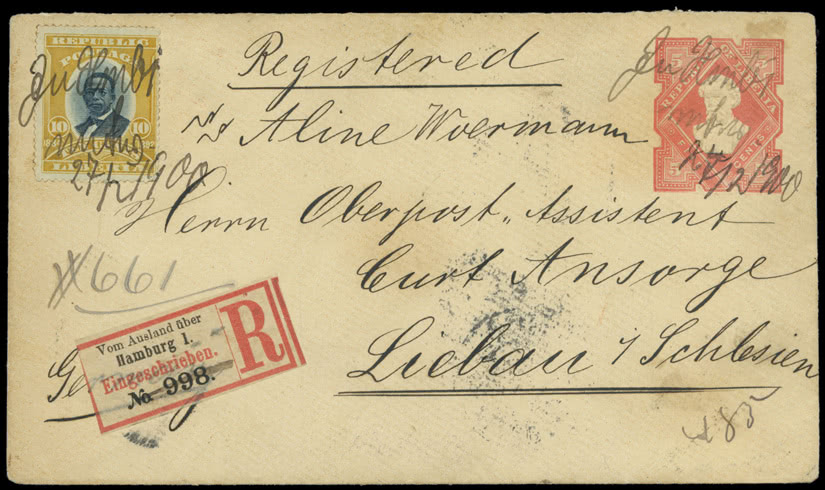 REPUBLIC
POSTAGE
10 10
LIBERIA
Registered
REPUBLIC OF LIBERIA
5 5
FIVE CENTS
27/2 1900
27/2 1900
Aline Woermann
Herrn Oberpost-Assistent
Curt Ansorge
Liebau i/Schlesien
661
Vom Ausland über
Hamburg 1.
Eingeschrieben.
No. 998.
R
85